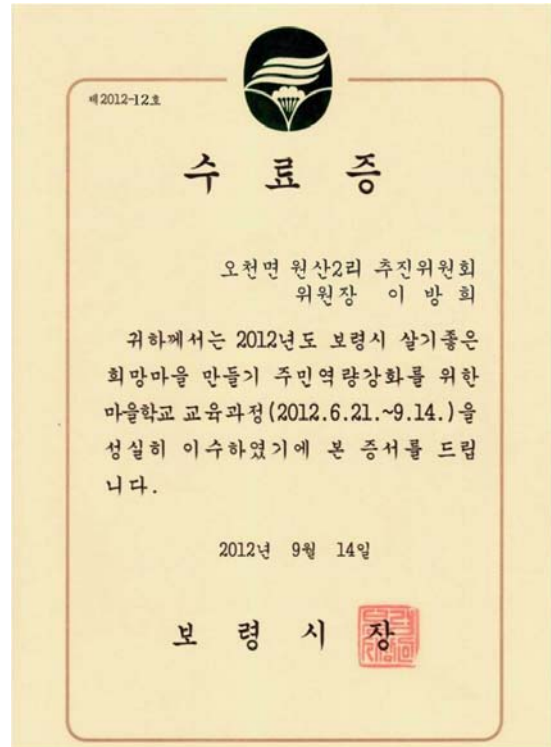 제2012-12호
수 료 증
오천면 원산2리 추진위원회
위원장 이 방 희
귀하께서는 2012년도 보령시 살기좋은
희망마을 만들기 주민역량강화를 위한
마을학교 교육과정(2012.6.21.~9.14.)을
성실히 이수하였기에 본 증서를 드립
니다.
2012년 9월 14일
보 령 시 장